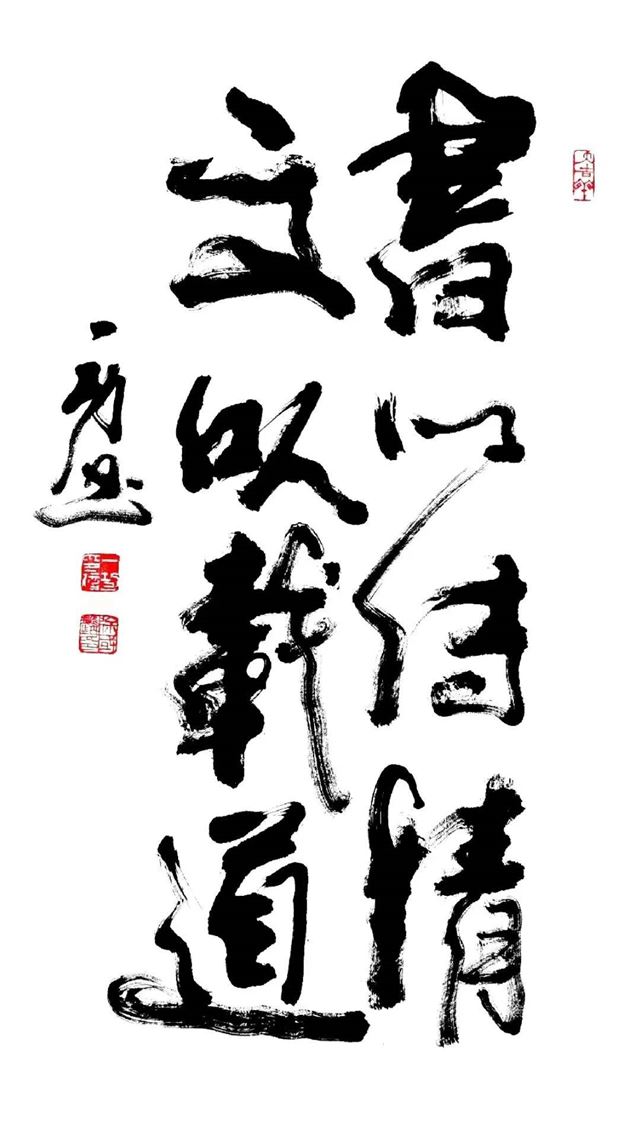 書以傳情
文以載道